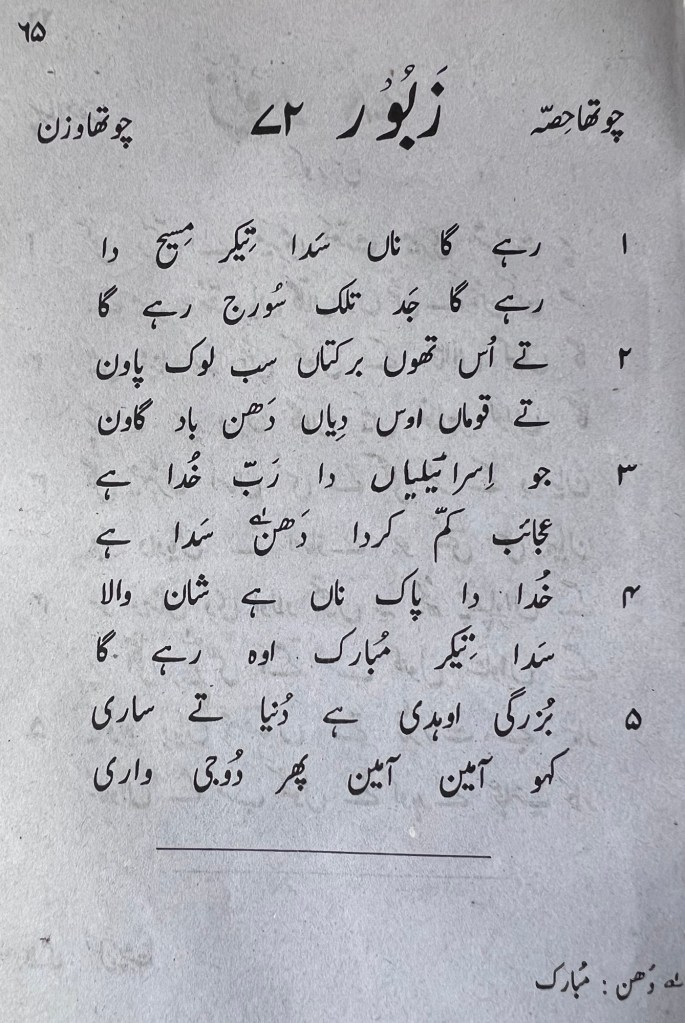 ۶۵
چوتھا حِصّہ زَبُور ۷۲ چوتھا وزن
۱ رہے گا ناں سَدا تِیکر مِسیح دا
رہے گا جَد تلک سُورج رہے گا
۲ تے اُس تھوں برکتاں سب لوک پاون
تے قوماں اوس دِیاں دَھن باد گاون
۳ جو اِسرائیلیاں دا رَبّ خُدا ہے
عجائب کمّ کردا دَھن؎۱ سَدا ہے
۴ خُدا دا پاک ناں ہے شان والا
سَدا تِیکر مُبارک اوہ رہے گا
۵ بُزرگی اوہدی ہے دُنیا تے ساری
کہو آمین آمین پھر دُوجی واری
؎۱ دَھن : مُبارک